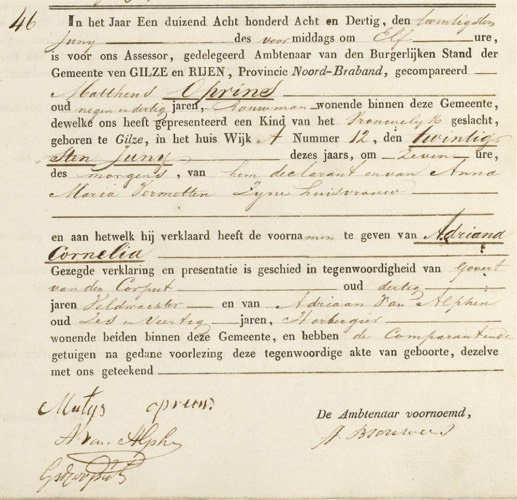 46
In het Jaar Een duizend Acht honderd Acht en Dertig, den twintigsten
Juny des voormiddags om Elf ure,
is voor ons Assessor, gedelegeerd Ambtenaar van den Burgerlijken Stand der
Gemeente van GILZE en RIJEN, Provincie Noord-Braband, gecompareerd
Mattheus Oprins
oud negen en dertig jaren, Bouwman wonende binnen deze Gemeente,
dewelke ons heeft gepresenteerd een Kind van het Vrouwelyk geslacht,
geboren te Gilze, in het huis Wijk A Nummer 12, den twintig
sten Juny dezes jaars, om Zeven ure,
des morgens, van hem declarant en van Anna
Maria Vermetten Zyne huisvrouw
en aan hetwelk hij verklaard heeft de voornamen te geven van Adriana
Cornelia
Gezegde verklaring en presentatie is geschied in tegenwoordigheid van Govert
van den Corput oud dertig
jaren Veldwachter en van Adriaan Van Alphen
oud Zes en Veertig jaren, Herbergier
wonende beiden binnen deze Gemeente, en hebben de Comparant en de
getuigen na gedane voorlezing deze tegenwoordige akte van geboorte, dezelve
met ons geteekend
Matys oprens
De Ambtenaar voornoemd,
A van Alphe
A. Brouwers